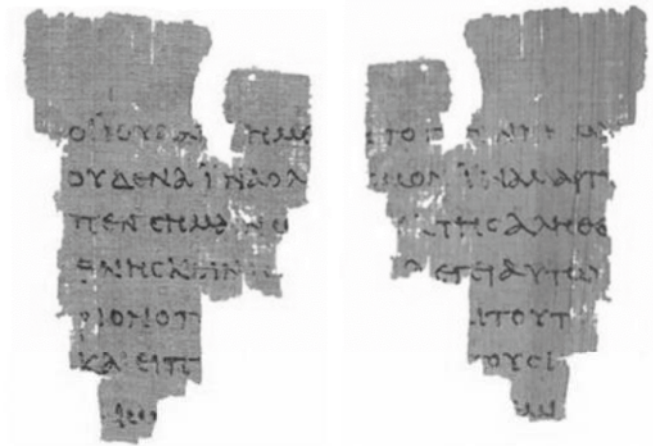 ΟΪΙΟΥΔΑΙ ΗΜΕ
ΟΥΔΕΝΑΪΝΑΟΛ
ΠΕΝϹΗΜΑΙΝΩ
ΘΝΗϹΚΕΙΝ
ΡΙΟΝΟΠ
ΚΑΙΕΙΠ
ΤΟ
ϹΜΟΝΪΝΑΜΑΡΤΥ
ΤΗϹΑΛΗΘΕ
ΛΕΓΕΙΑΥΤΩ
ΙΤΟΥΤ
ΤΟΥϹΙ
ΜΙ